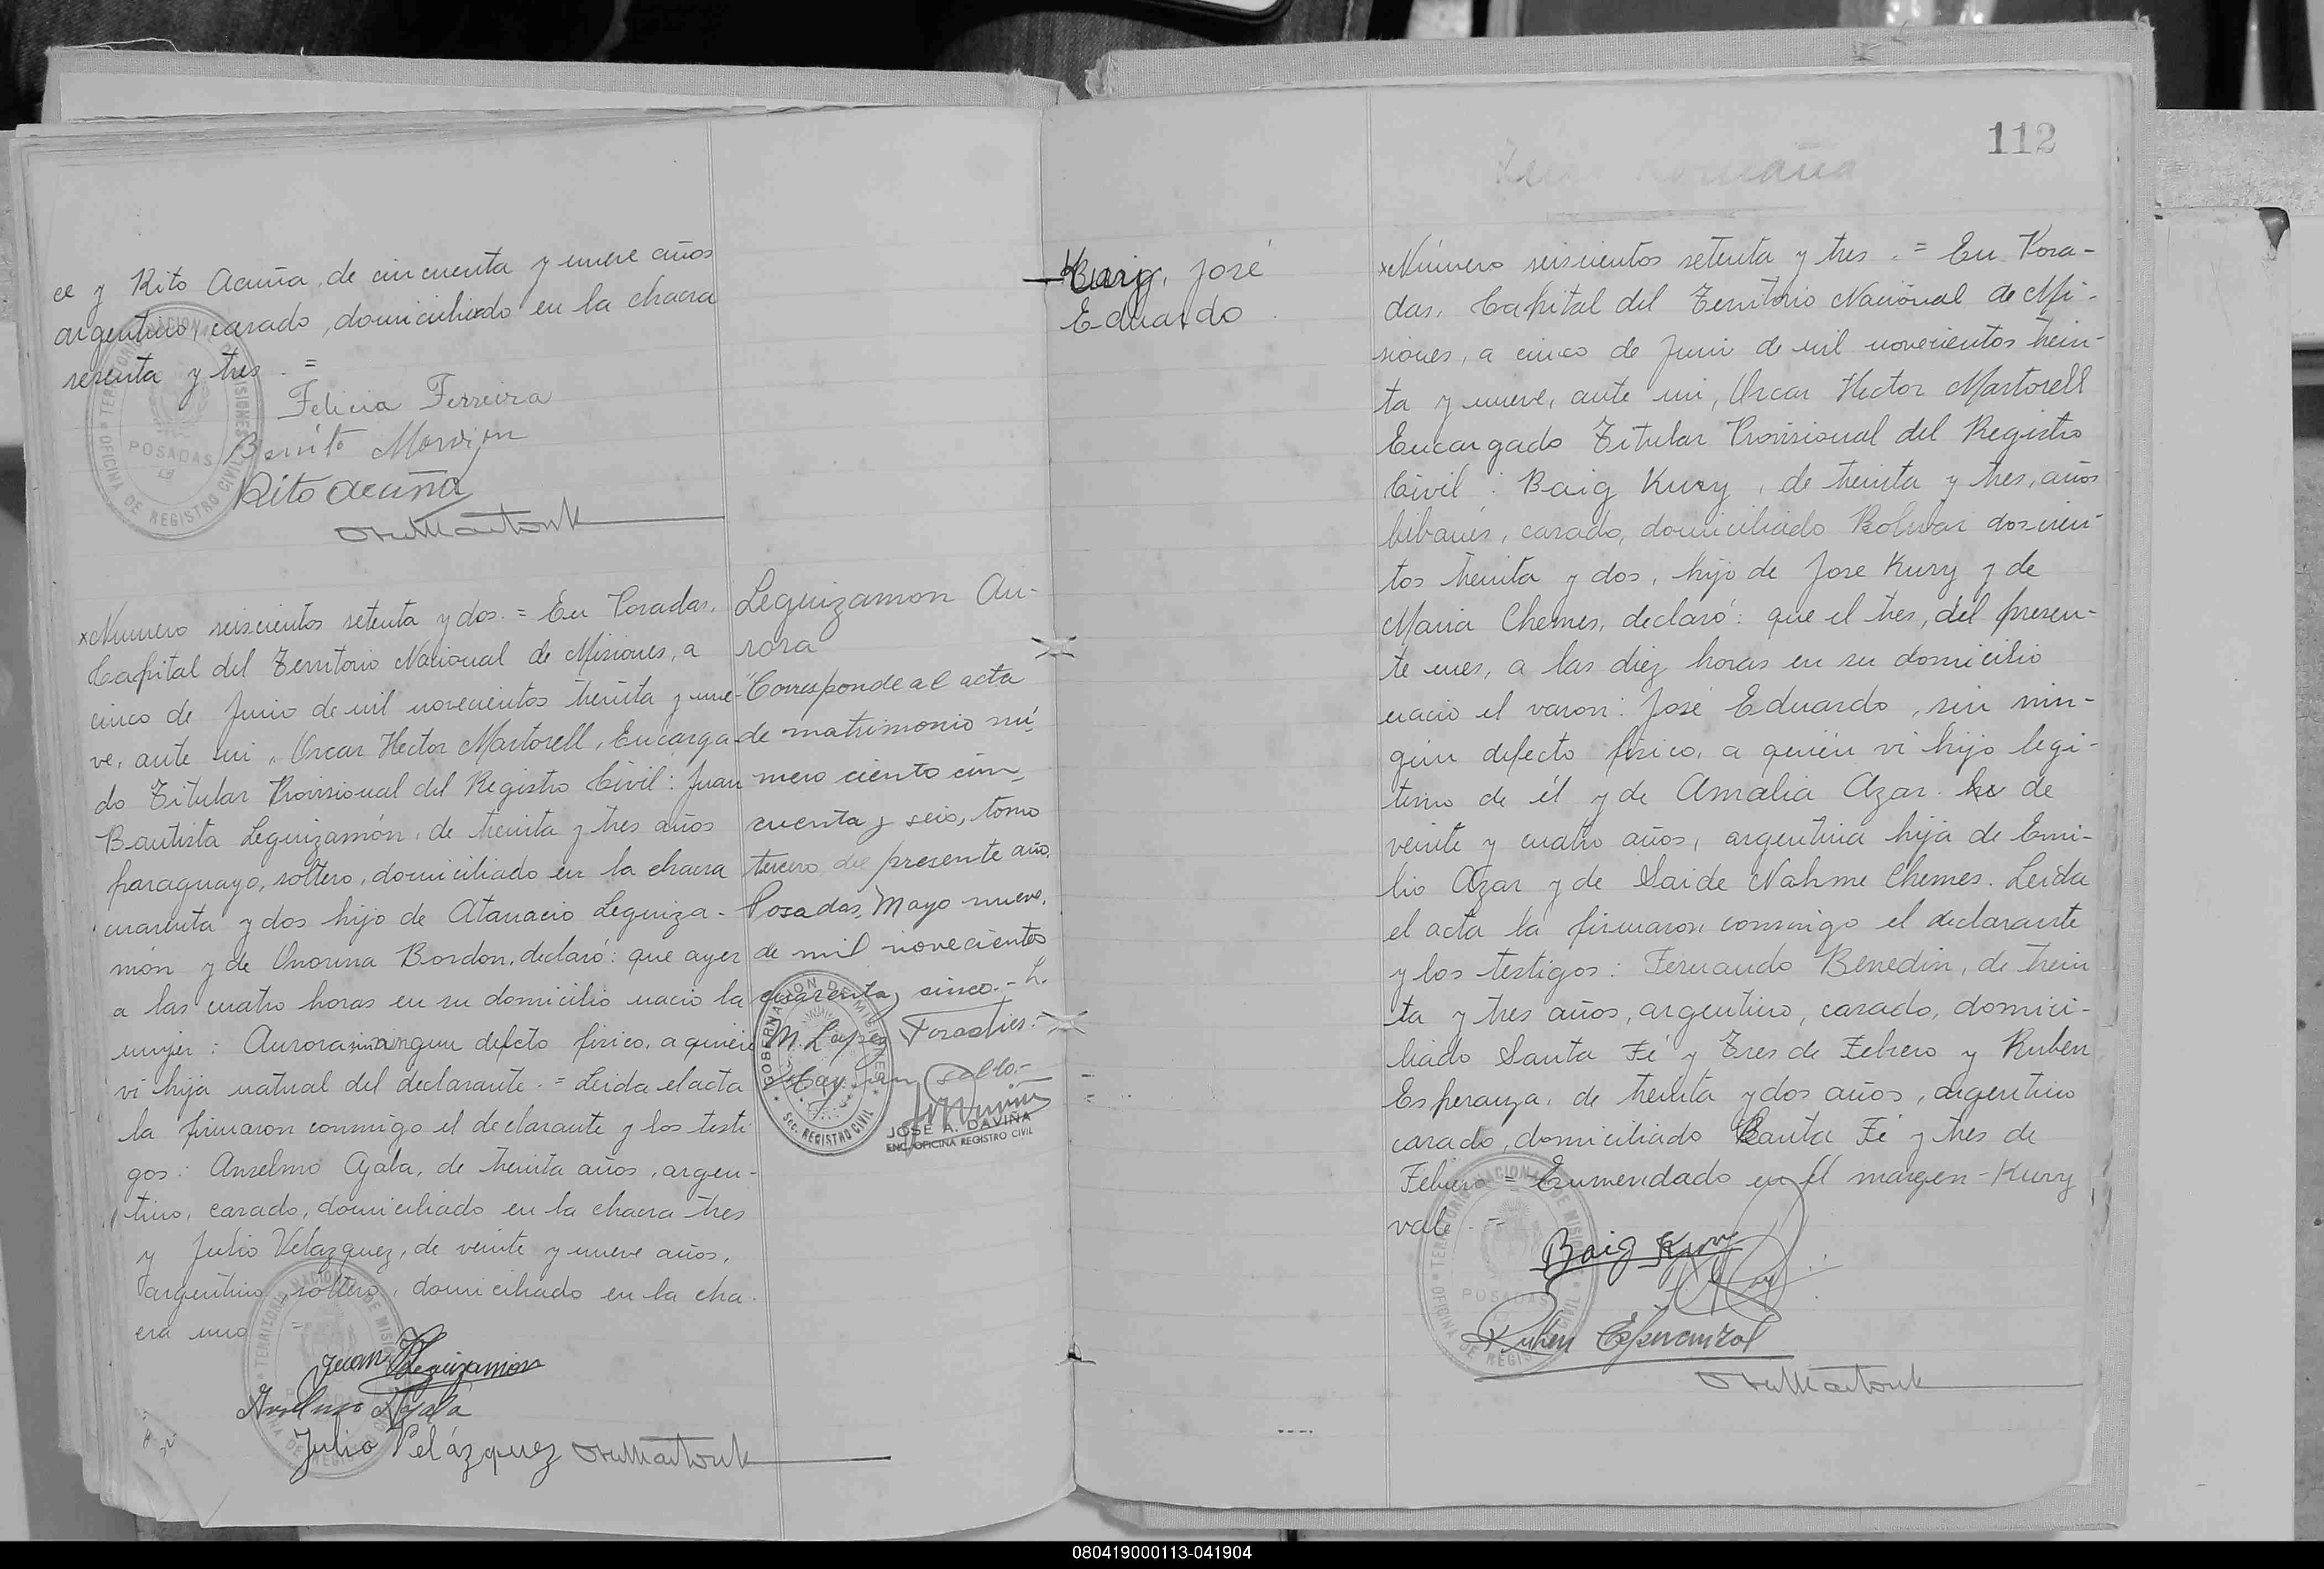 ce y Rito Acuña, de cincuenta y nueve años
argentino, casado, domiciliado en la chacra
sesenta y tres . =
Felicia Ferreira
Benito
Rito Acuña
TERRITORIO NACIONAL DE MISIONES
POSADAS
OFICINA DE REGISTRO CIVIL
xNúmero seiscientos setenta y dos. = En Posadas,
Capital del Territorio Nacional de Misiones, a
cinco de Junio de mil novecientos treinta y nue-
ve, ante mi, Oscar Hector Martorell, Encarga-
do Titular Provisional del Registro Civil: Juan
Bautista Leguizamón, de treinta y tres años
paraguayo, soltero, domiciliado en la chacra
cuarenta y dos hijo de Atanacio Leguiza-
món y de Bordon, declaró: que ayer
a las cuatro horas en su domicilio nacio la
mujer: Aurora ningun defecto fisico, a quién
vi hija natural del declarante. = Leida el acta
la firmaron conmigo el declarante y los testi-
gos: Anselmo Ayala, de treinta años, argen-
tino, casado, domiciliado en la chacra tres
y Julio Velazquez, de veinte y nueve años,
argentino, soltero, domiciliado en la cha-
cra uno
Juan Leguizamon
Anselmo Ayala
Julio Velázquez
TERRITORIO NACIONAL DE MISIONES
POSADAS
OFICINA DE REGISTRO CIVIL
Leguizamon Au-
rora
"Corresponde al acta
de matrimonio nú-
mero ciento cin-
cuenta y seis, tomo
tercero del presente año.
Posadas, Mayo nueve,
de mil novecientos
cuarenta y cinco.- L.
M. Lopez Forastier.-
Hay un sello.-
GOBERNACION DE MISIONES
Sec. REGISTRO CIVIL
JOSE A. DAVIÑA
ENC. OFICINA REGISTRO CIVIL
112
Kury, José
Eduardo
xNúmero seiscientos setenta y tres . = En Posa-
das, Capital del Territorio Nacional de Mi-
siones, a cinco de Juni de mil novecientos trein-
ta y nueve, ante mi, Oscar Hector Martorell
Encargado Titular Provisional del Registro
Civil: Baig Kury, de treinta y tres, años
libanés, casado, domiciliado Bolivar doscien-
tos treinta y dos, hijo de Jose Kury y de
Maria Chemes, declaró: que el tres, del presen-
te mes, a las diez horas en su domicilio
nacio el varon: José Eduardo, sin nin-
gun defecto fisico, a quién vi hijo legi-
timo de él y de Amalia Azar. de
veinte y cuatro años, argentina hija de Emi-
lio Azar y de Saide Nahme Chemes. Leida
el acta la firmaron conmigo el declarante
y los testigos: Fernando Benedin, de trein
ta y tres años, argentino, casado, domici-
liado Santa Fé y Tres de Febrero y Ruben
Esperanza, de treinta y dos años, argentino
casado, domiciliado Santa Fé y tres de
Febrero = Enmendado en el margen - Kury
vale. -
Baig Kury
Ruben Esperanza
TERRITORIO NACIONAL DE MISIONES
POSADAS
OFICINA DE REGISTRO CIVIL
080419000113-041904